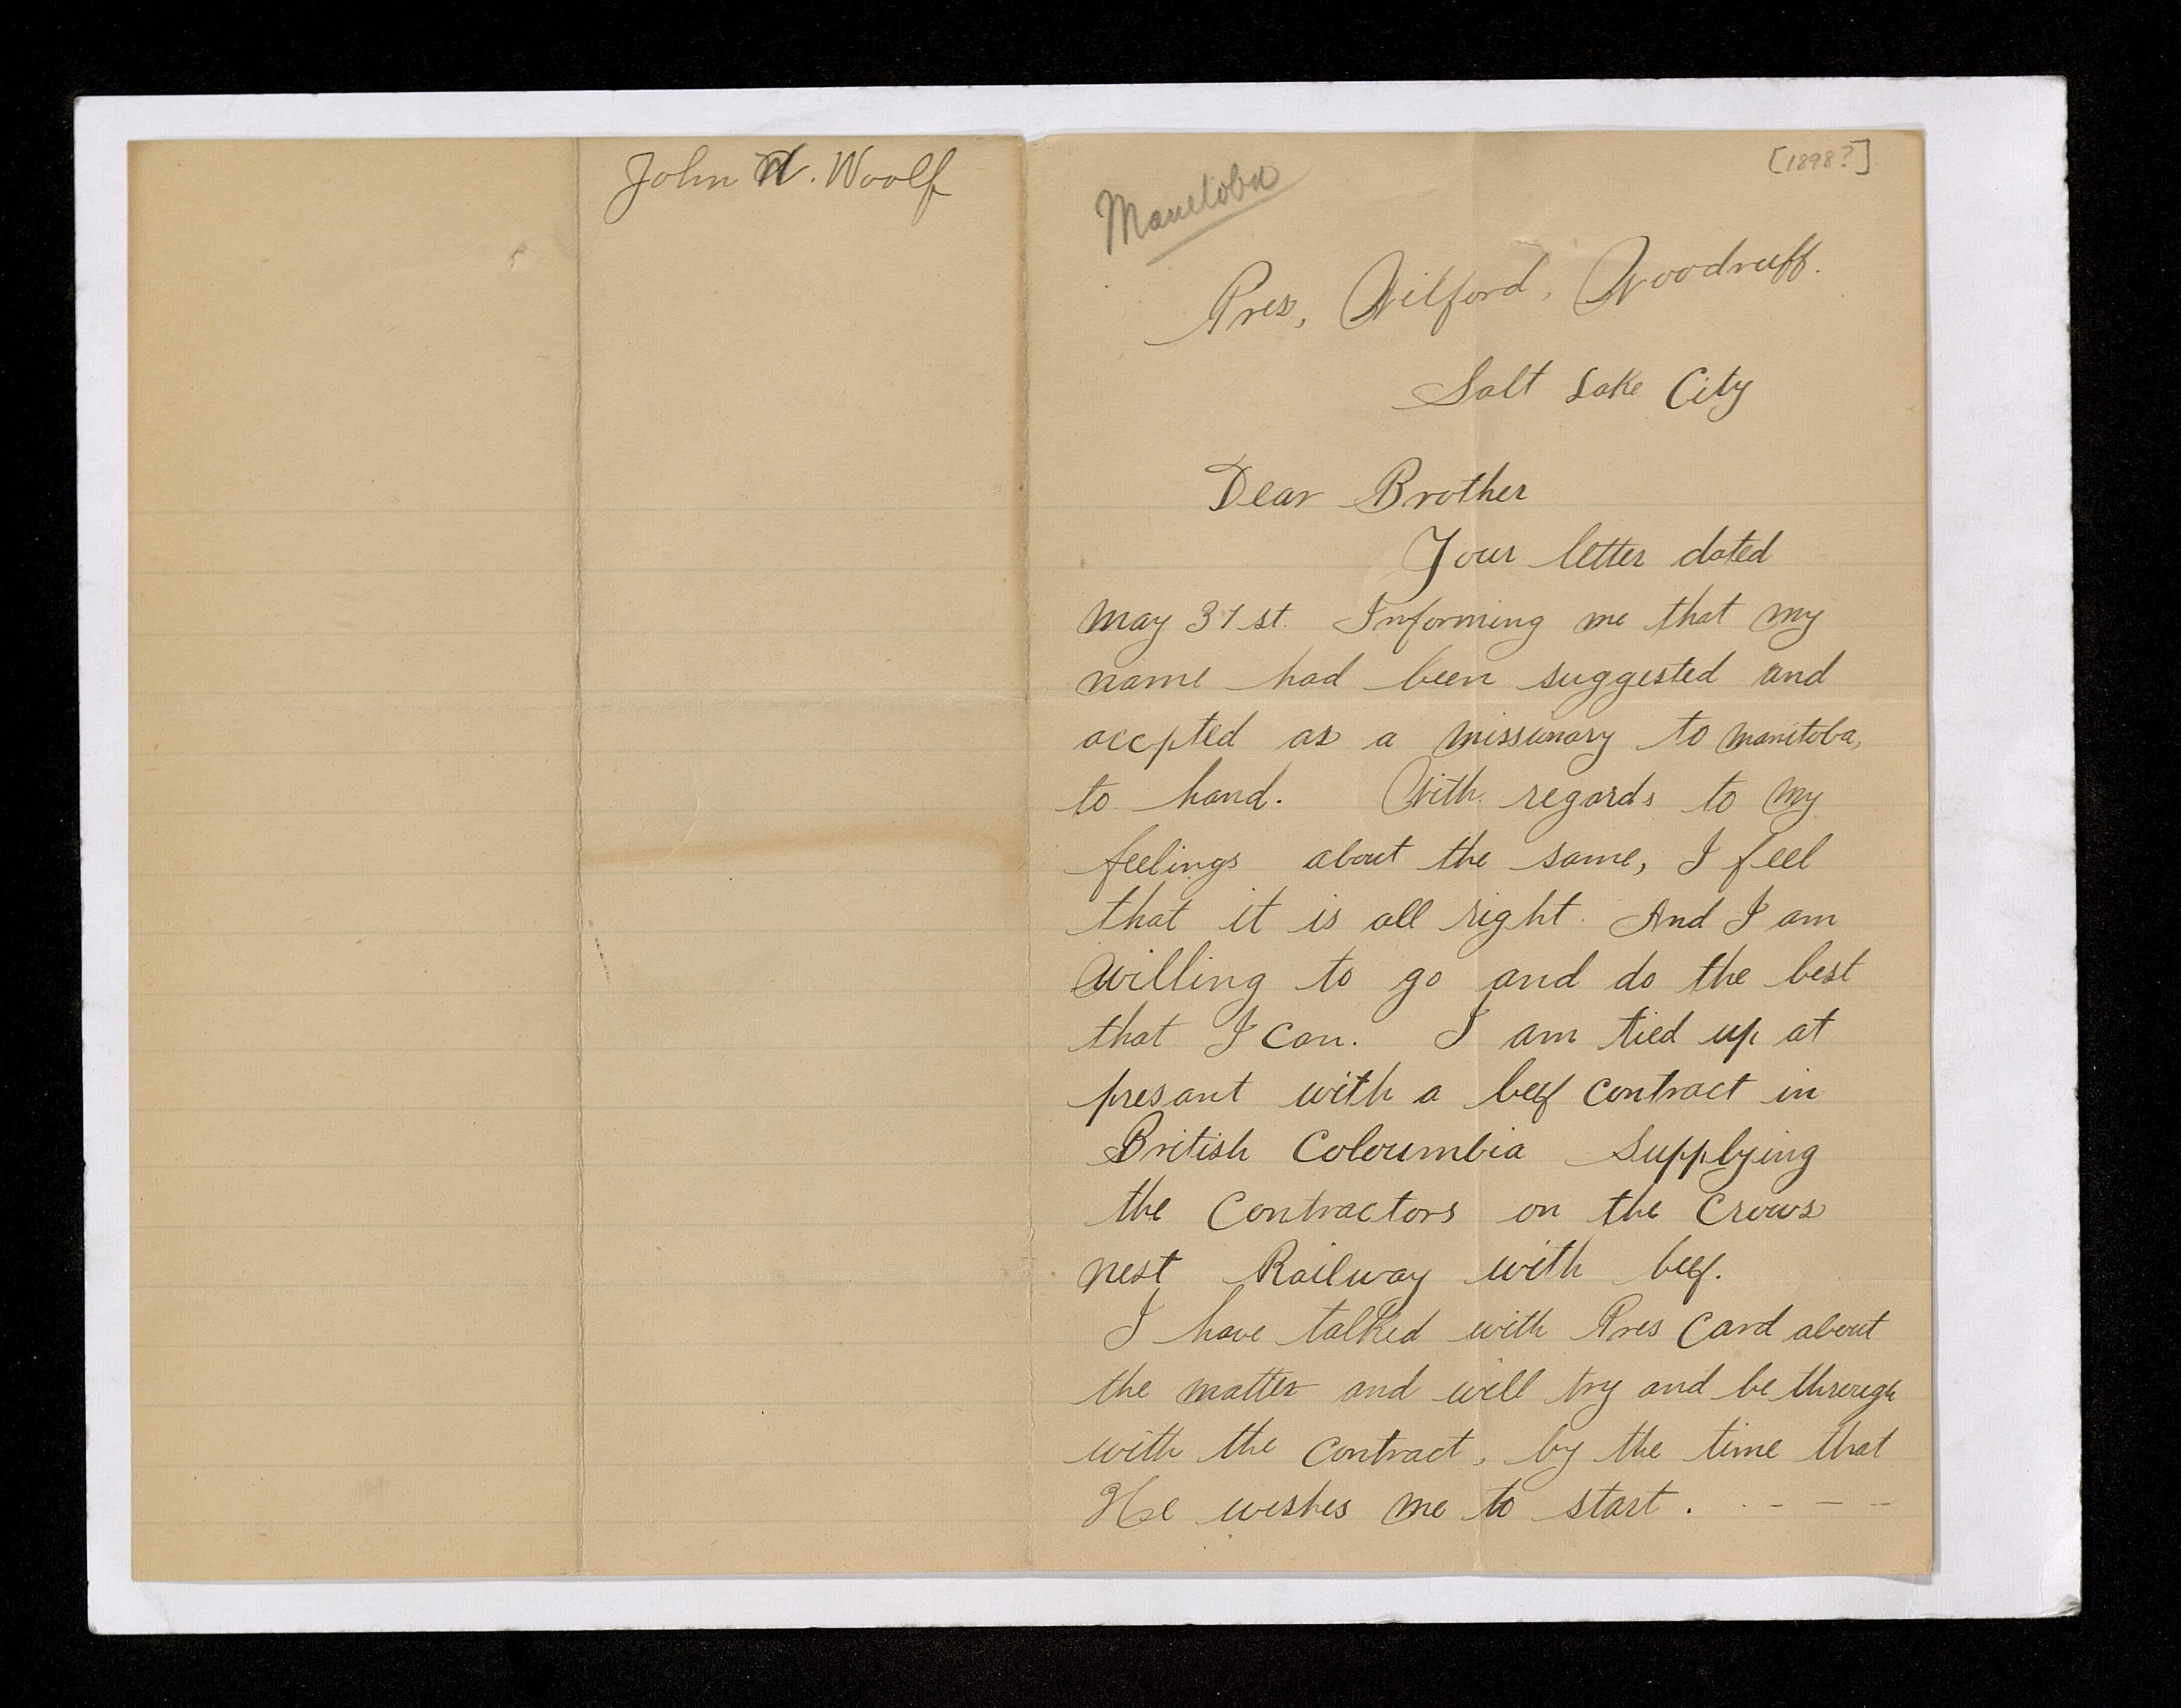 John W. Woolf
[1898?]
Manitoba
Pres, Wilford, Woodruff.
Salt Lake City
Dear Brother
Your letter dated
May 31st. Informing me that my
name had been suggested and
accpted as a missionary to Manitoba,
to hand. With regards to my
feelings about the same, I feel
that it is all right. And I am
Willing to go and do the best
that I can. I am tied up at
presant with a beef contract in
British Coloumbia Supplying
the Contractors on the Crows
nest Railway with beef.
I have talked with Pres Card about
the matter and will try and be through
with the contract, by the time that
He wishes me to start. - - - -